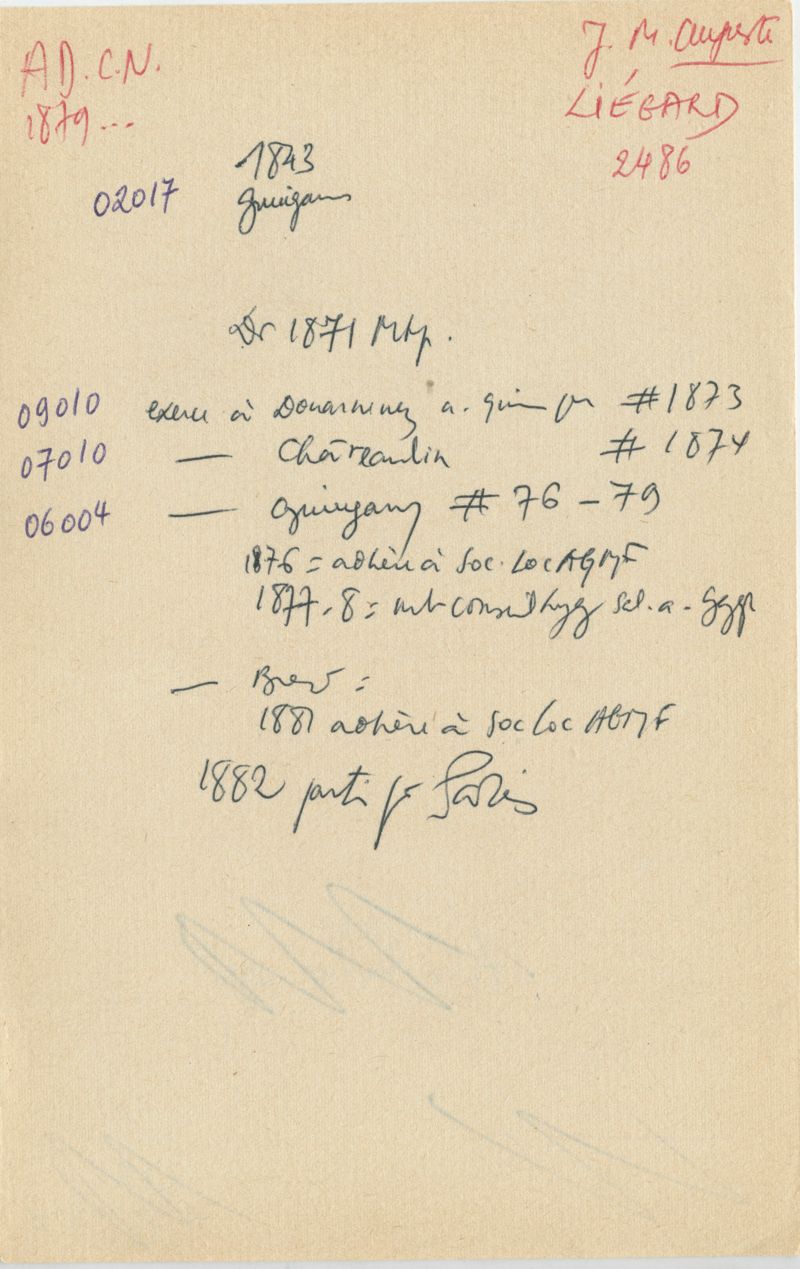 AD.C.N.
1879...
J. M. Auguste
LIÉGARD
2486
1843
02017 Guingamp
Dr 1871 Mtp.
09010 exerce à Douarnenez a. Quimper # 1873
07010 — Châteaulin # 1874
06004 — Guingamp # 76 - 79
1876 = adhère à Soc. Loc AGMF
1877-8 = mb conseil hyg sal. a. Ggp
— Brest =
1881 adhère à Soc Loc AGMF
1882 parti pr Paris